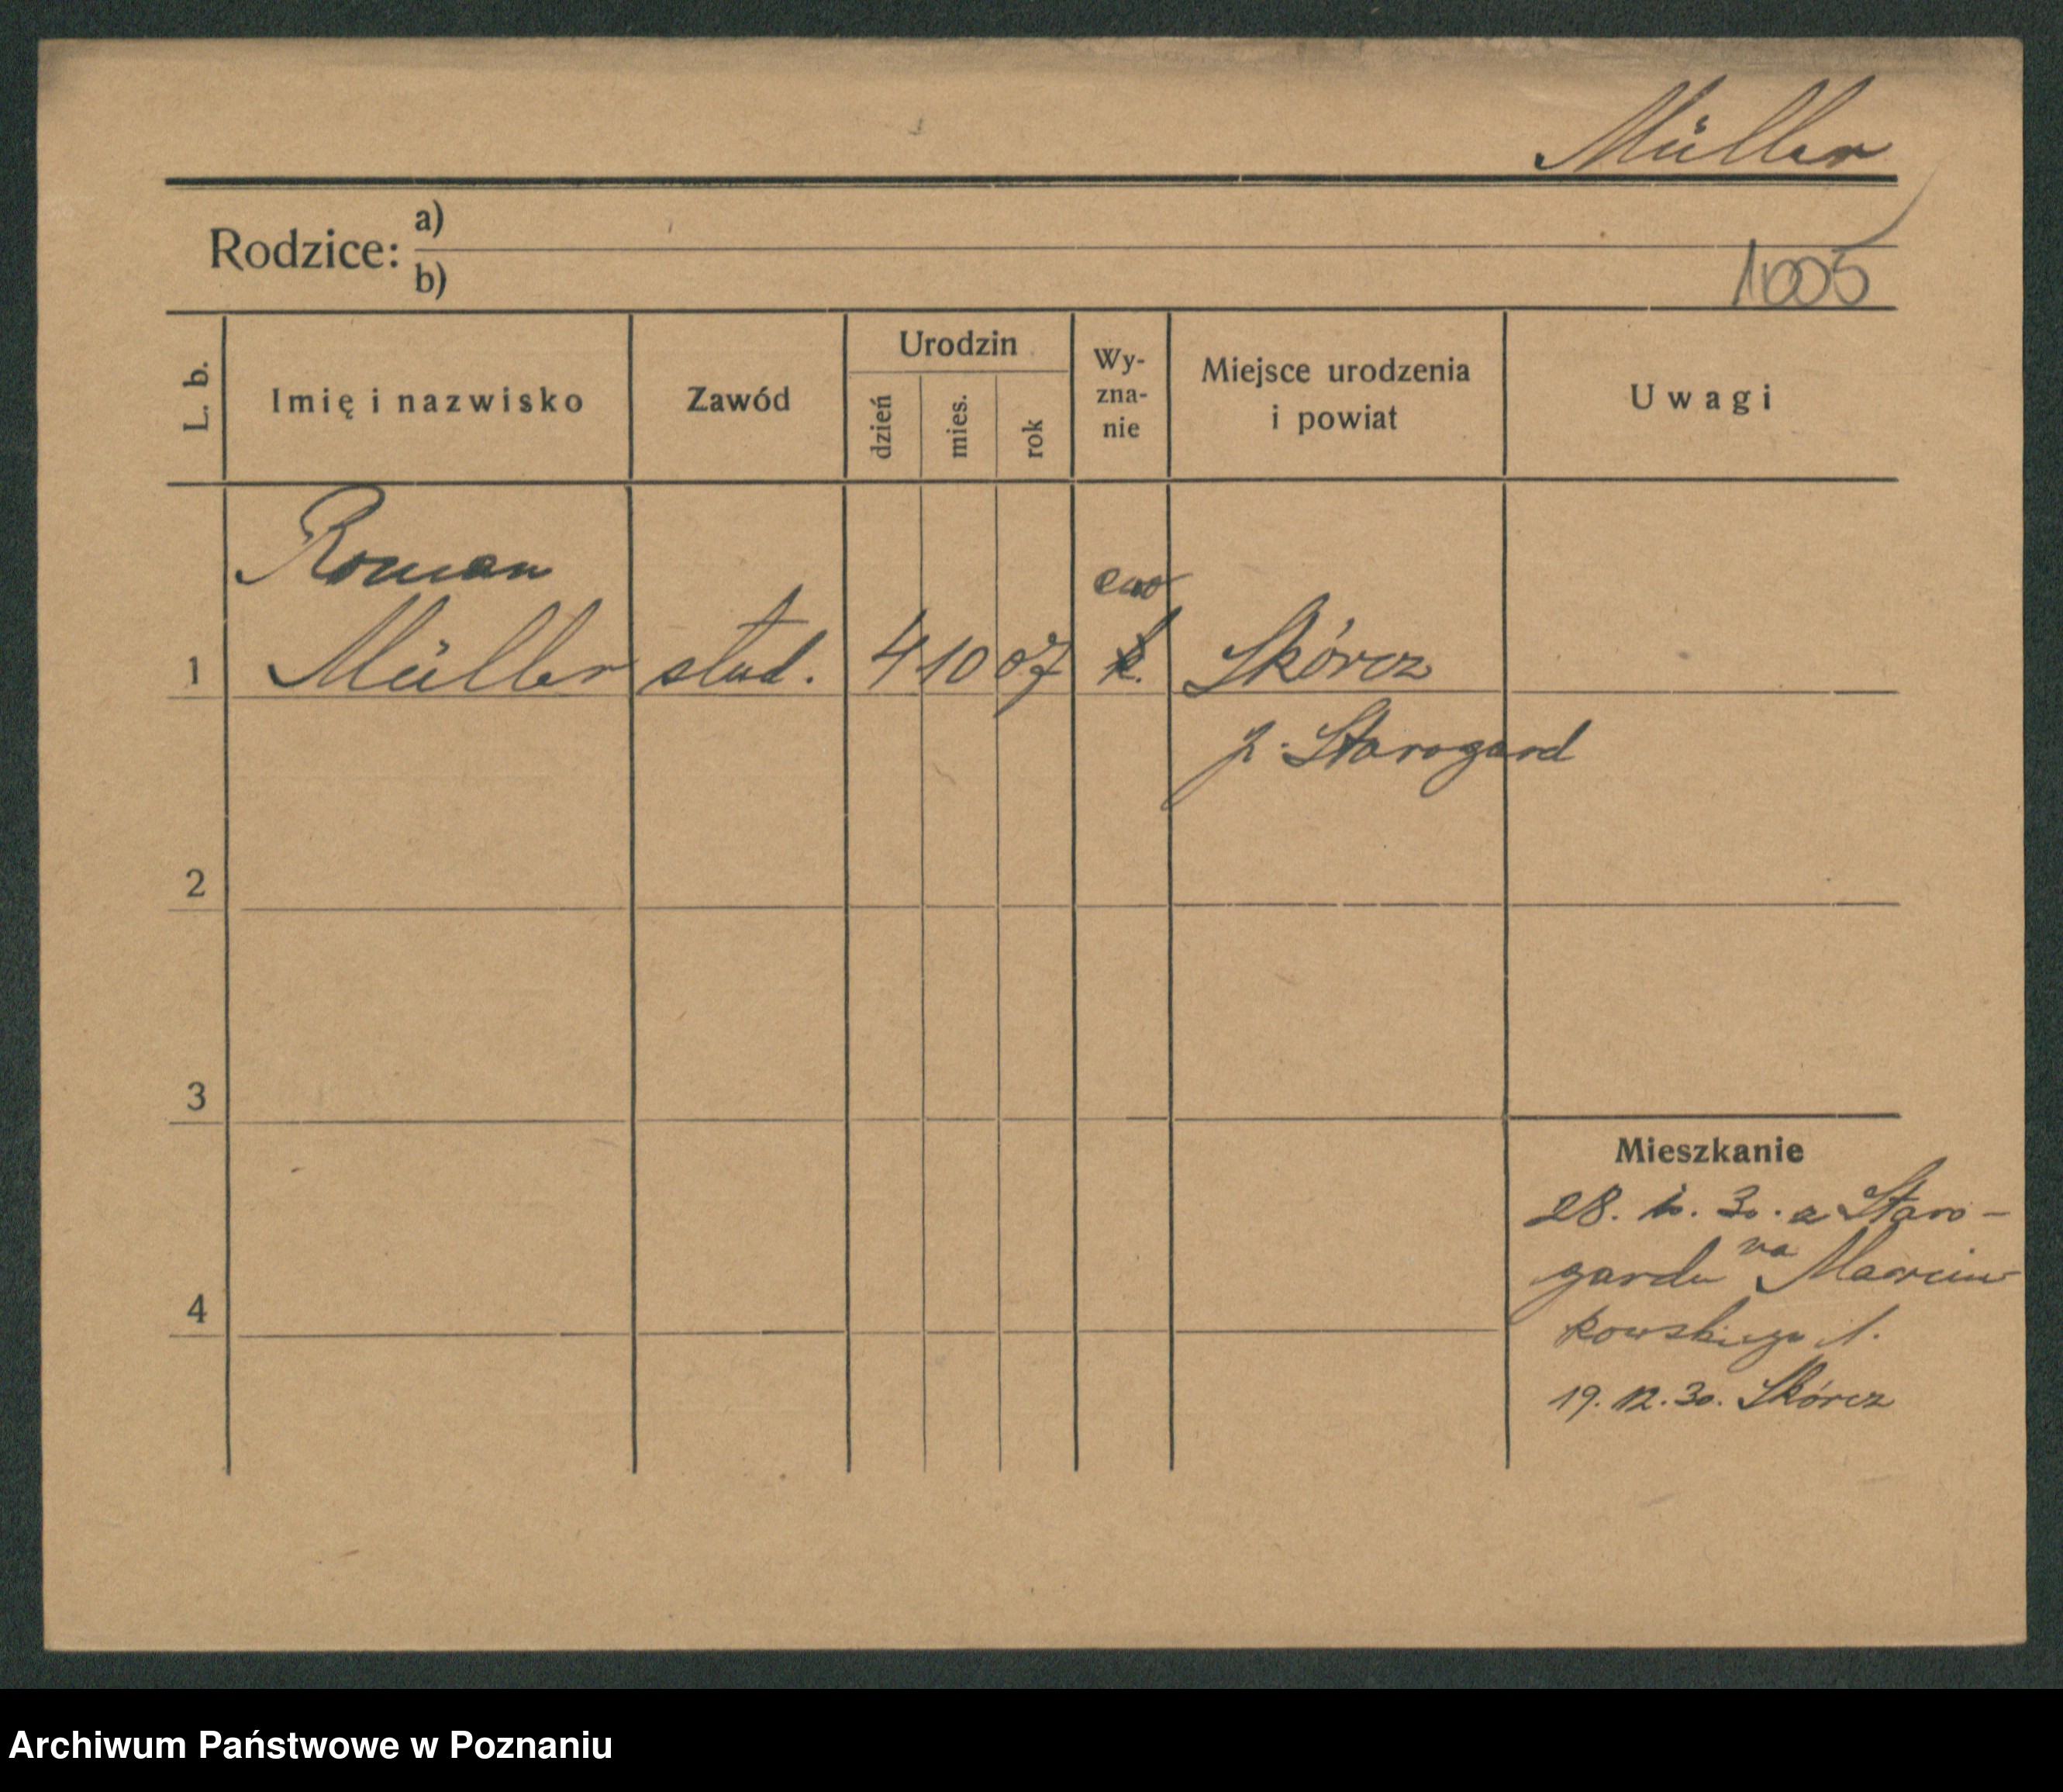 Müller
Rodzice: a)
b)
1005
L. b.
Imię i nazwisko
Zawód
Urodzin
dzień
mies.
rok
Wy-
zna-
nie
Miejsce urodzenia
i powiat
Uwagi
Roman
1 Müller stud. 4 10 07 k. Skórcz
p. Starogard
2
3
4
Mieszkanie
28. 10. 30. z Staro-
gardu na Marcin-
kowskiego 1.
19. 12. 30. Skórcz
Archiwum Państwowe w Poznaniu